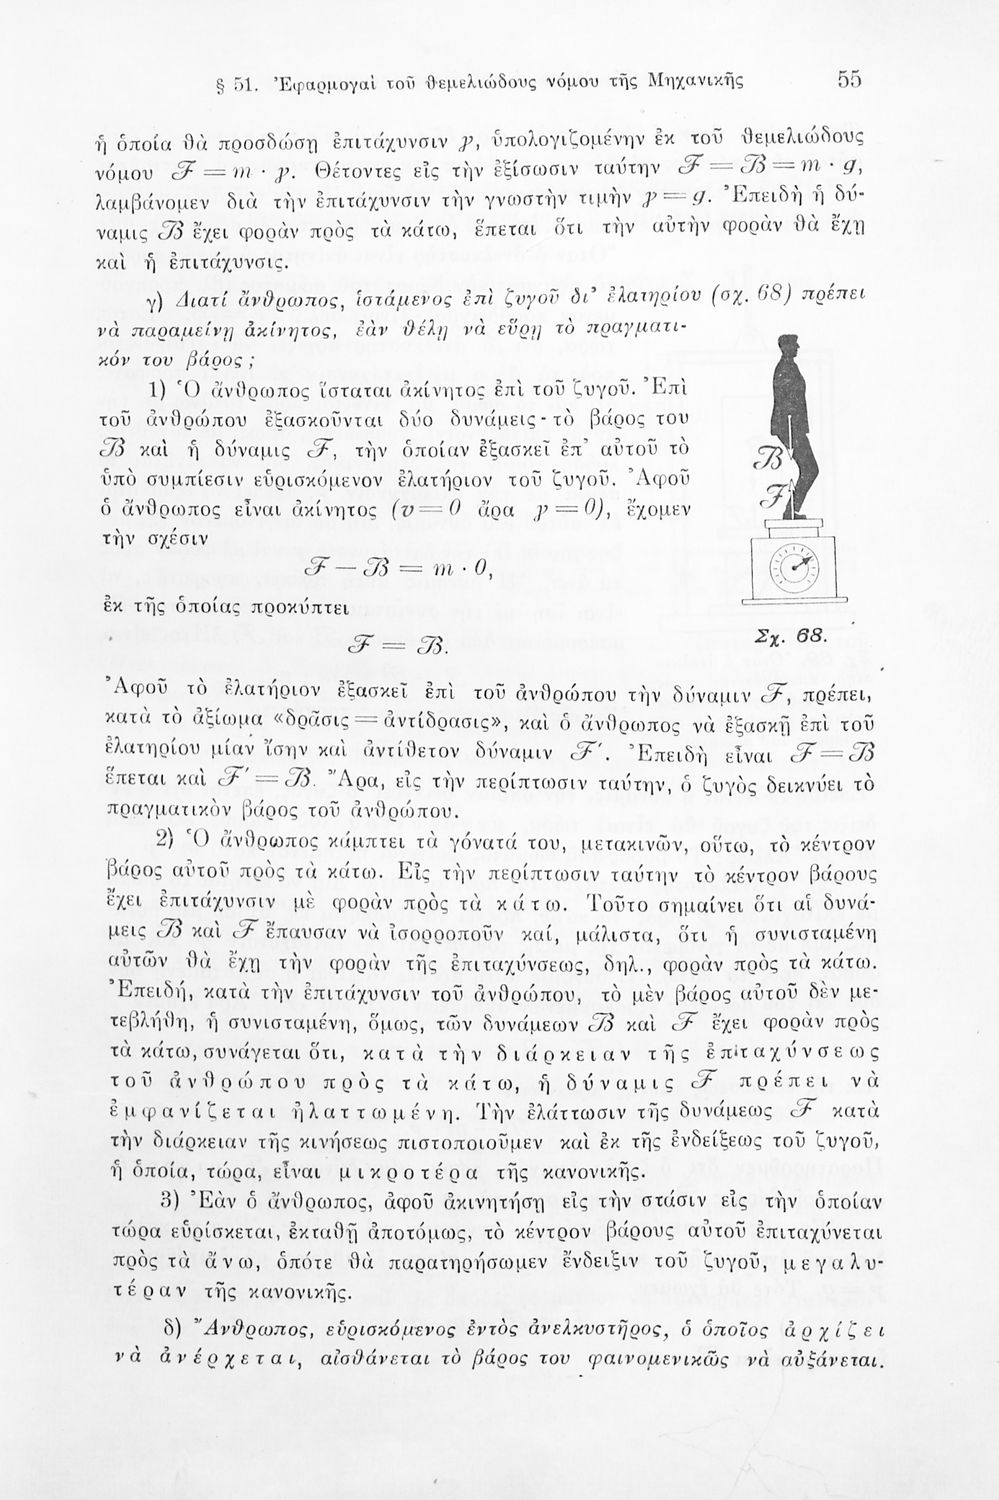 § 51. Ἐφαρμογαὶ τοῦ θεμελιώδους νόμου τῆς Μηχανικῆς 55
ἡ ὁποία θὰ προσδώσῃ ἐπιτάχυνσιν γ, ὑπολογιζομένην ἐκ τοῦ θεμελιώδους
νόμου F = m · γ. Θέτοντες εἰς τὴν ἐξίσωσιν ταύτην F = B = m · g,
λαμβάνομεν διὰ τὴν ἐπιτάχυνσιν τὴν γνωστὴν τιμὴν γ = g. Ἐπειδὴ ἡ δύ-
ναμις B ἔχει φορὰν πρὸς τὰ κάτω, ἕπεται ὅτι τὴν αὐτὴν φορὰν θὰ ἔχῃ
καὶ ἡ ἐπιτάχυνσις.
γ) Διατί ἄνθρωπος, ἱστάμενος ἐπὶ ζυγοῦ δι' ἐλατηρίου (σχ. 68) πρέπει
νὰ παραμείνῃ ἀκίνητος, ἐὰν θέλῃ νὰ εὕρῃ τὸ πραγματι-
κόν του βάρος ;
1) Ὁ ἄνθρωπος ἵσταται ἀκίνητος ἐπὶ τοῦ ζυγοῦ. Ἐπὶ
τοῦ ἀνθρώπου ἐξασκοῦνται δύο δυνάμεις· τὸ βάρος του
B καὶ ἡ δύναμις F, τὴν ὁποίαν ἐξασκεῖ ἐπ' αὐτοῦ τὸ
ὑπὸ συμπίεσιν εὑρισκόμενον ἐλατήριον τοῦ ζυγοῦ. Ἀφοῦ
ὁ ἄνθρωπος εἶναι ἀκίνητος (v = 0 ἄρα γ = 0), ἔχομεν
τὴν σχέσιν
F — B = m · 0,
ἐκ τῆς ὁποίας προκύπτει
F = B.
B
F
Σχ. 68.
Ἀφοῦ τὸ ἐλατήριον ἐξασκεῖ ἐπὶ τοῦ ἀνθρώπου τὴν δύναμιν F, πρέπει,
κατὰ τὸ ἀξίωμα «δρᾶσις = ἀντίδρασις», καὶ ὁ ἄνθρωπος νὰ ἐξασκῇ ἐπὶ τοῦ
ἐλατηρίου μίαν ἴσην καὶ ἀντίθετον δύναμιν F'. Ἐπειδὴ εἶναι F = B
ἕπεται καὶ F' = B. Ἄρα, εἰς τὴν περίπτωσιν ταύτην, ὁ ζυγὸς δεικνύει τὸ
πραγματικὸν βάρος τοῦ ἀνθρώπου.
2) Ὁ ἄνθρωπος κάμπτει τὰ γόνατά του, μετακινῶν, οὕτω, τὸ κέντρον
βάρος αὐτοῦ πρὸς τὰ κάτω. Εἰς τὴν περίπτωσιν ταύτην τὸ κέντρον βάρους
ἔχει ἐπιτάχυνσιν μὲ φορὰν πρὸς τὰ κάτω. Τοῦτο σημαίνει ὅτι αἱ δυνά-
μεις B καὶ F ἔπαυσαν νὰ ἰσορροποῦν καί, μάλιστα, ὅτι ἡ συνισταμένη
αὐτῶν θὰ ἔχῃ τὴν φορὰν τῆς ἐπιταχύνσεως, δηλ., φορὰν πρὸς τὰ κάτω.
Ἐπειδή, κατὰ τὴν ἐπιτάχυνσιν τοῦ ἀνθρώπου, τὸ μὲν βάρος αὐτοῦ δὲν με-
τεβλήθη, ἡ συνισταμένη, ὅμως, τῶν δυνάμεων B καὶ F ἔχει φορὰν πρὸς
τὰ κάτω, συνάγεται ὅτι, κατὰ τὴν διάρκειαν τῆς ἐπιταχύνσεως
τοῦ ἀνθρώπου πρὸς τὰ κάτω, ἡ δύναμις F πρέπει νὰ
ἐμφανίζεται ἠλαττωμένη. Τὴν ἐλάττωσιν τῆς δυνάμεως F κατὰ
τὴν διάρκειαν τῆς κινήσεως πιστοποιοῦμεν καὶ ἐκ τῆς ἐνδείξεως τοῦ ζυγοῦ,
ἡ ὁποία, τώρα, εἶναι μικροτέρα τῆς κανονικῆς.
3) Ἐὰν ὁ ἄνθρωπος, ἀφοῦ ἀκινητήσῃ εἰς τὴν στάσιν εἰς τὴν ὁποίαν
τώρα εὑρίσκεται, ἐκταθῇ ἀποτόμως, τὸ κέντρον βάρους αὐτοῦ ἐπιταχύνεται
πρὸς τὰ ἄνω, ὁπότε θὰ παρατηρήσωμεν ἔνδειξιν τοῦ ζυγοῦ, μεγαλυ-
τέραν τῆς κανονικῆς.
δ) Ἄνθρωπος, εὑρισκόμενος ἐντὸς ἀνελκυστῆρος, ὁ ὁποῖος ἀρχίζει
νὰ ἀνέρχεται, αἰσθάνεται τὸ βάρος του φαινομενικῶς νὰ αὐξάνεται.